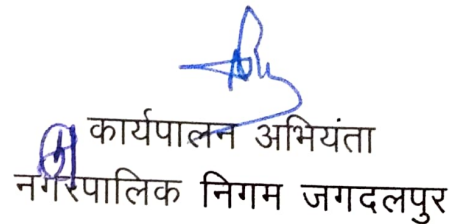 कार्यपालन अभियंता
नगरपालिक निगम जगदलपुर